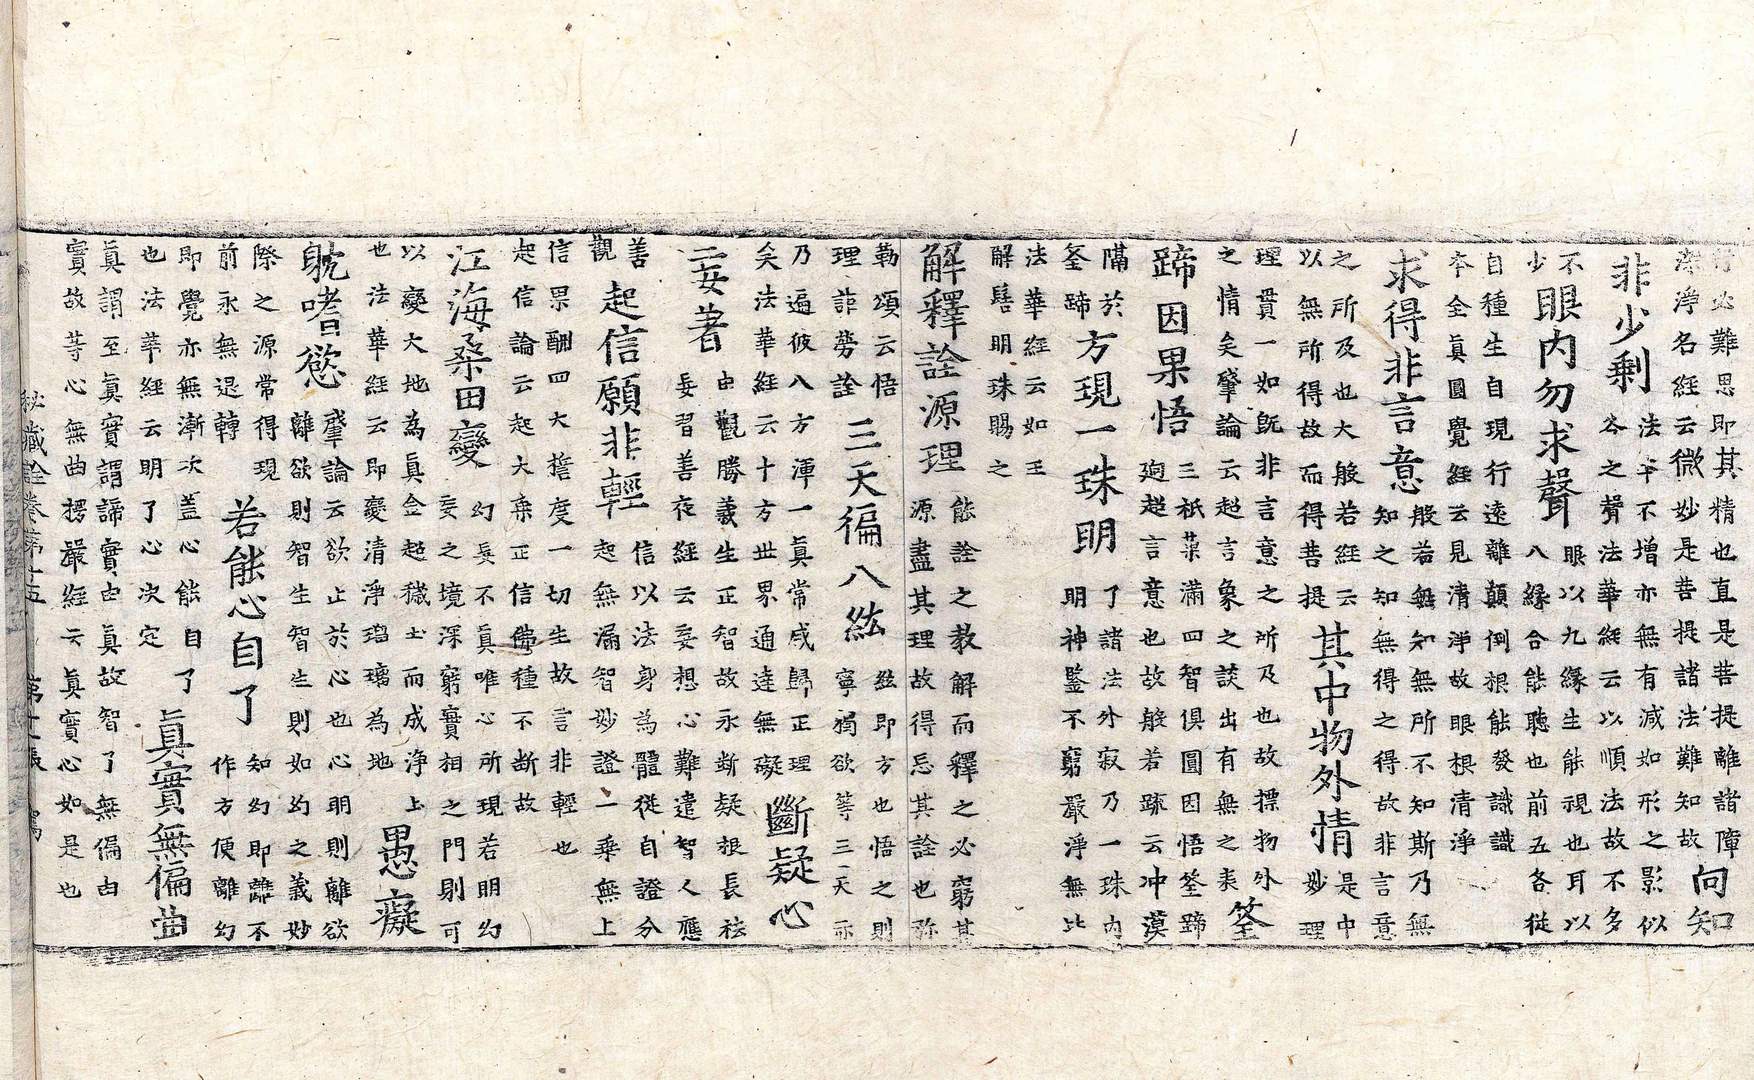 行必難思即其精也直是菩提離諸障
深淨名經云微妙是菩提諸法難知故
向知非少剩
法本不增亦無有減如形之影似
谷之聲法華經云以順法故不多
不少
眼内勿求聲
眼以九緣生能視也耳以
八緣合能聽也前五各從
自種生自現行遠離顛倒根能發識識
本全真圓覺經云見清淨故眼根清淨
求得非言意
般若無知無所不知斯乃無
知之知無得之得故非言意
之所及也大般若經云
以無所得故而得菩提
其中物外情
是中
妙理
理貫一如旣非言意之所及也故摽物外
之情矣肇論云超言象之談出有無之表
筌蹄因果悟
三祇菓滿四智俱圓因悟筌蹄
迥超言意也故般若疏云冲漠
隔於
筌蹄
方現一珠明
了諸法外寂乃一珠内
明神鑒不窮嚴淨無比
法華經云如王
解髻明珠賜之
解釋詮源理
能詮之教解而釋之必窮其
源盡其理故得忘其詮也弥
勒頌云悟
理詎勞詮
三天徧八紘
紘即方也悟之則
寧獨欲等三天亦
乃遍彼八方渾一真常咸歸正理
矣法華經云十方世界通達無礙
斷疑心
二妄著
由觀勝義生正智故永斷疑根長祛
妄習善夜經云妄想心難遣智人應
善
觀
起信願非輕
信以法身為體從自證分
起無漏智妙證一乘無上
信果酬四大擔度一切生故言非輕也
起信論云起大乘正信佛種不断故
江海桑田變
幻真不真唯心所現若明幻
妄之境深窮實相之門則可
以變大地為真金超穢土而成淨上
也法華經云即變清淨瑠璃為地
愚癡
躭嗜慾
肇論云欲止於心也心明則離欲
離欲則智生智生則如幻之義妙
際之源常得現
前永無退轉
若能心自了
知幻即離不
作方便離幻
即覺亦無漸次盖心能自了
也法華經云明了心决定
真實無偏曲
真謂至真實謂諦實由真故智了無偏由
實故等心無曲楞嚴經云真實心如是也
秘藏詮卷第十五